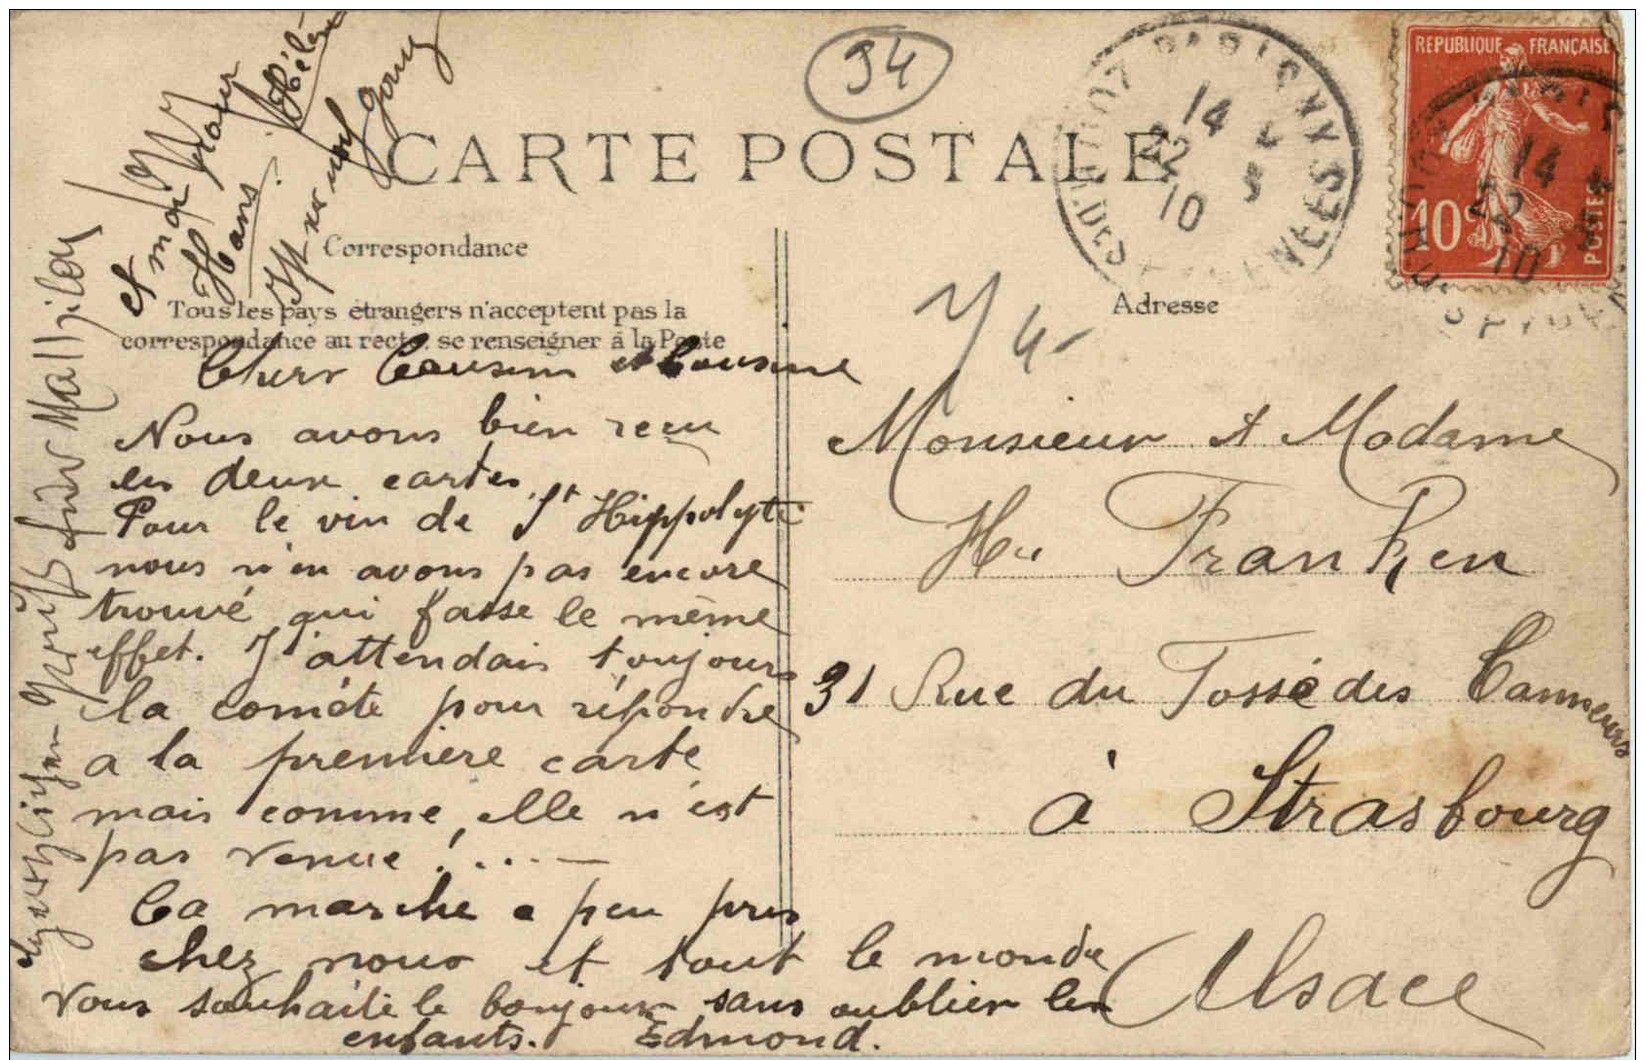 94
CARTE POSTALE
REPUBLIQUE FRANÇAISE
10c
POSTES
14
22
10
Correspondance
Tous les pays étrangers n'acceptent pas la
correspondance au recto. se renseigner à la Poste
Adresse
Chers Cousin et Cousine
Nous avons bien recu
les deux cartes.
Pour le vin de St Hippolyte
nous n'en avons pas encore
trouvé qui fasse le même
effet. J'attendais toujours
la comète pour répondre
a la première carte
mais comme, elle n'est
pas venue!....—
Ca marche a peu près
chez nous et tout le monde
vous souhaite le bonjour sans oublier les
enfants. Edmond.
Monsieur et Madame
Franken
31 Rue du Fossé des Tanneurs
à Strasbourg
Alsace
et moi
Hans